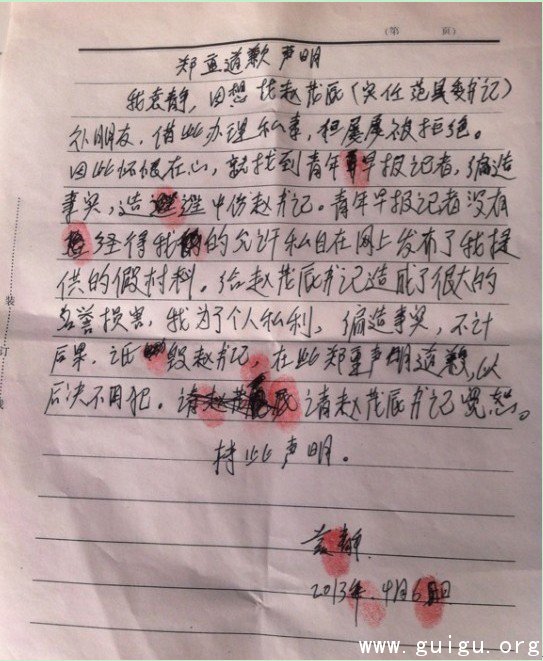 (第 页)
郑重道歉声明
我袁静,因想找赵茂辰(实任范县委书记)
办朋友,借此办理私事,但屡屡被拒绝。
因此怀恨在心,就找到青年早报记者,偏造
事实,造 中伤赵书记。青年早报记者没有
经得我的允许私自在网上发布了我提
供的假材料。给赵茂辰书记造成了很大的
名誉损害,我为了个人私利,偏造事实,不计
后果,诋毁赵书记,在此郑重声明道歉,以
后决不再犯。请赵茂辰书记宽恕。
持此声明。
袁静
2013年4月6日
装
订
线
www.guigu.org